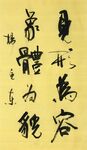 見形為容
象體為貌